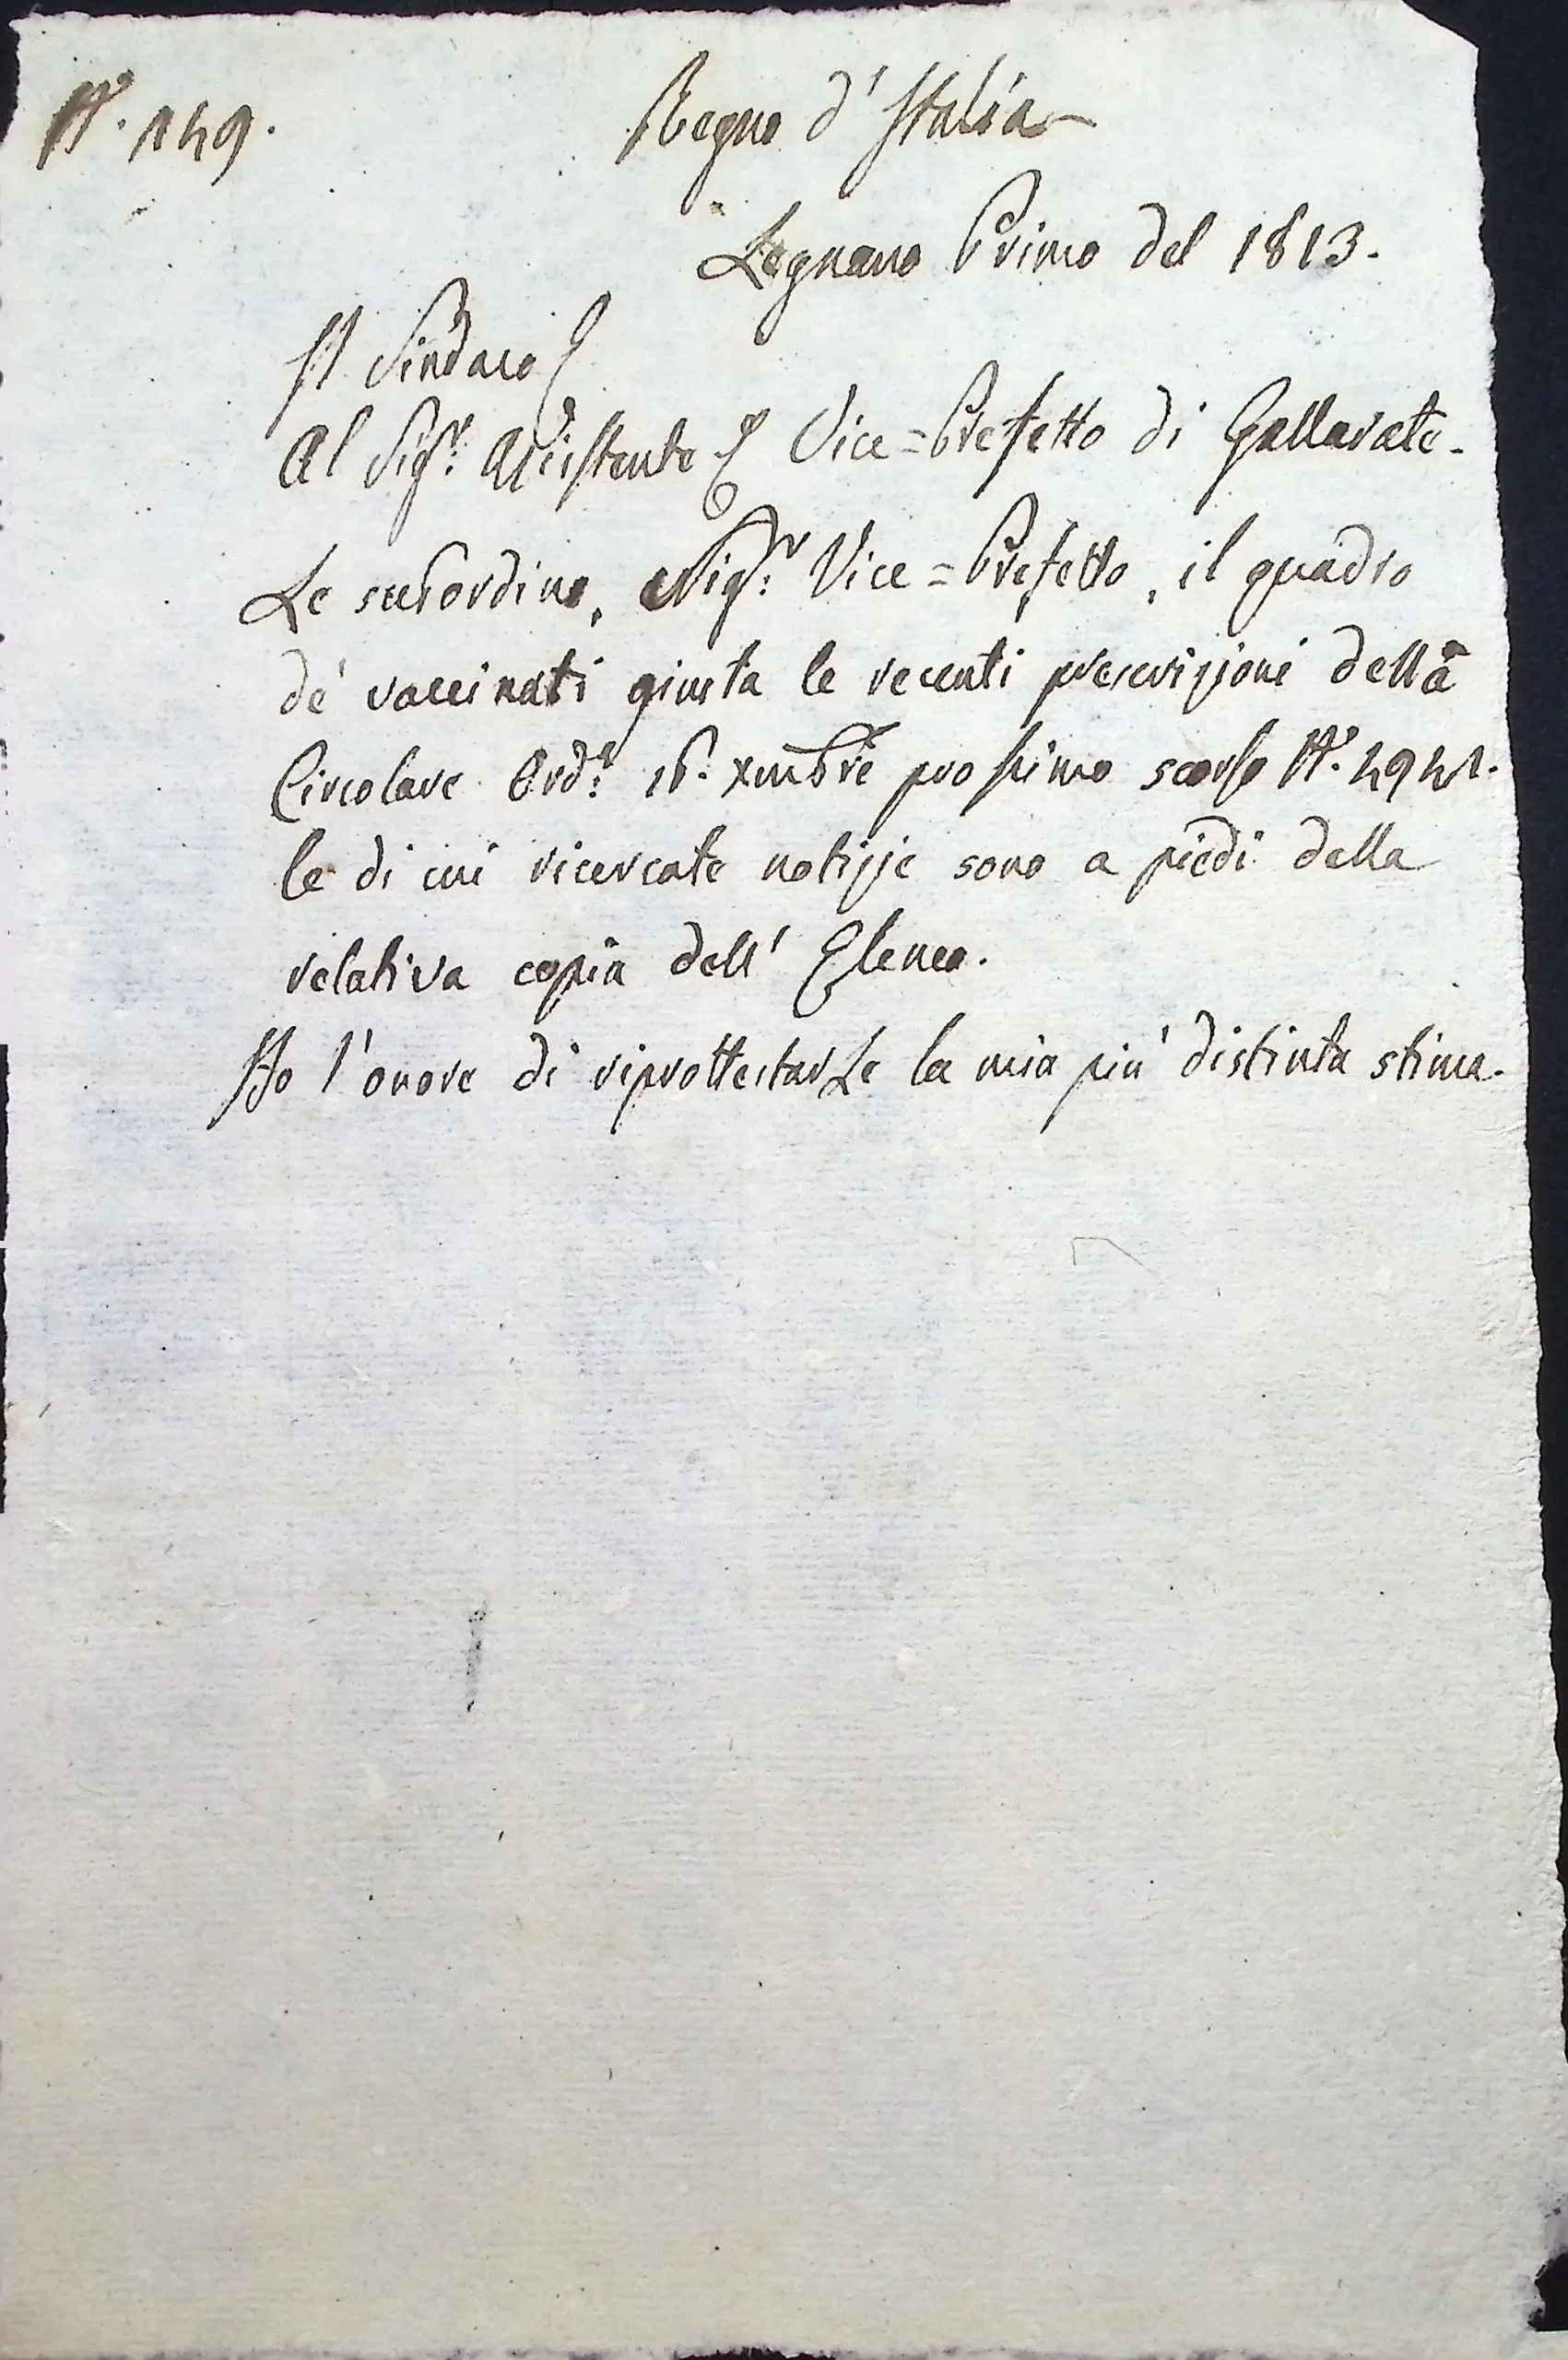 N.° 149.
Regno d'Italia
Legnano Primo del 1813.
Il Sindaco
Al Sig.r Assistente Vice=Prefetto di Gallarate.
Le subordino, Sig.r Vice=Prefetto, il quadro
de' vaccinati giusta le recenti prescrizioni della
Circolare Ord.e 16. xmbre prossimo scorso N.° 4941.
le di cui ricercate notizje sono a piedi della
relativa copia dell' Elenco.
Ho l'onore di riprottestarLe la mia più distinta stima.